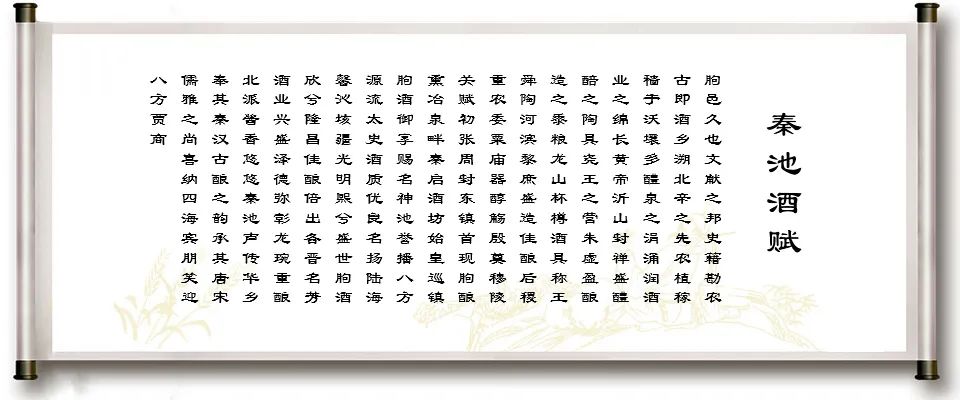 秦池酒赋
朐邑久也文献之邦史籍勘农
古即酒乡溯北辛之先农植稼
穑于沃壤多醴泉之涓涌润酒
业之绵长黄帝沂山封祥盛醴
醅之陶具尧王之营朱虚盈酿
造之黍粮龙山杯樽酒具称王
舜陶河滨黎庶盛造佳酿后稷
重农委粟庙器醇觞殷奠穆陵
关赋初张周封东镇首现朐酿
熏冶泉畔秦启酒坊始皇巡镇
朐酒御享赐名神池誉播八方
源流太史酒质优良名扬陆海
馨沁垓疆光明熙兮盛世朐酒
欣兮隆昌佳酿倍出各晋名芳
酒业兴盛泽德弥彰龙琬重酿
北派酱香悠悠秦池声传华乡
奉其秦汉古酿之韵承其唐宋
儒雅之尚喜纳四海宾朋笑迎
八方贾商